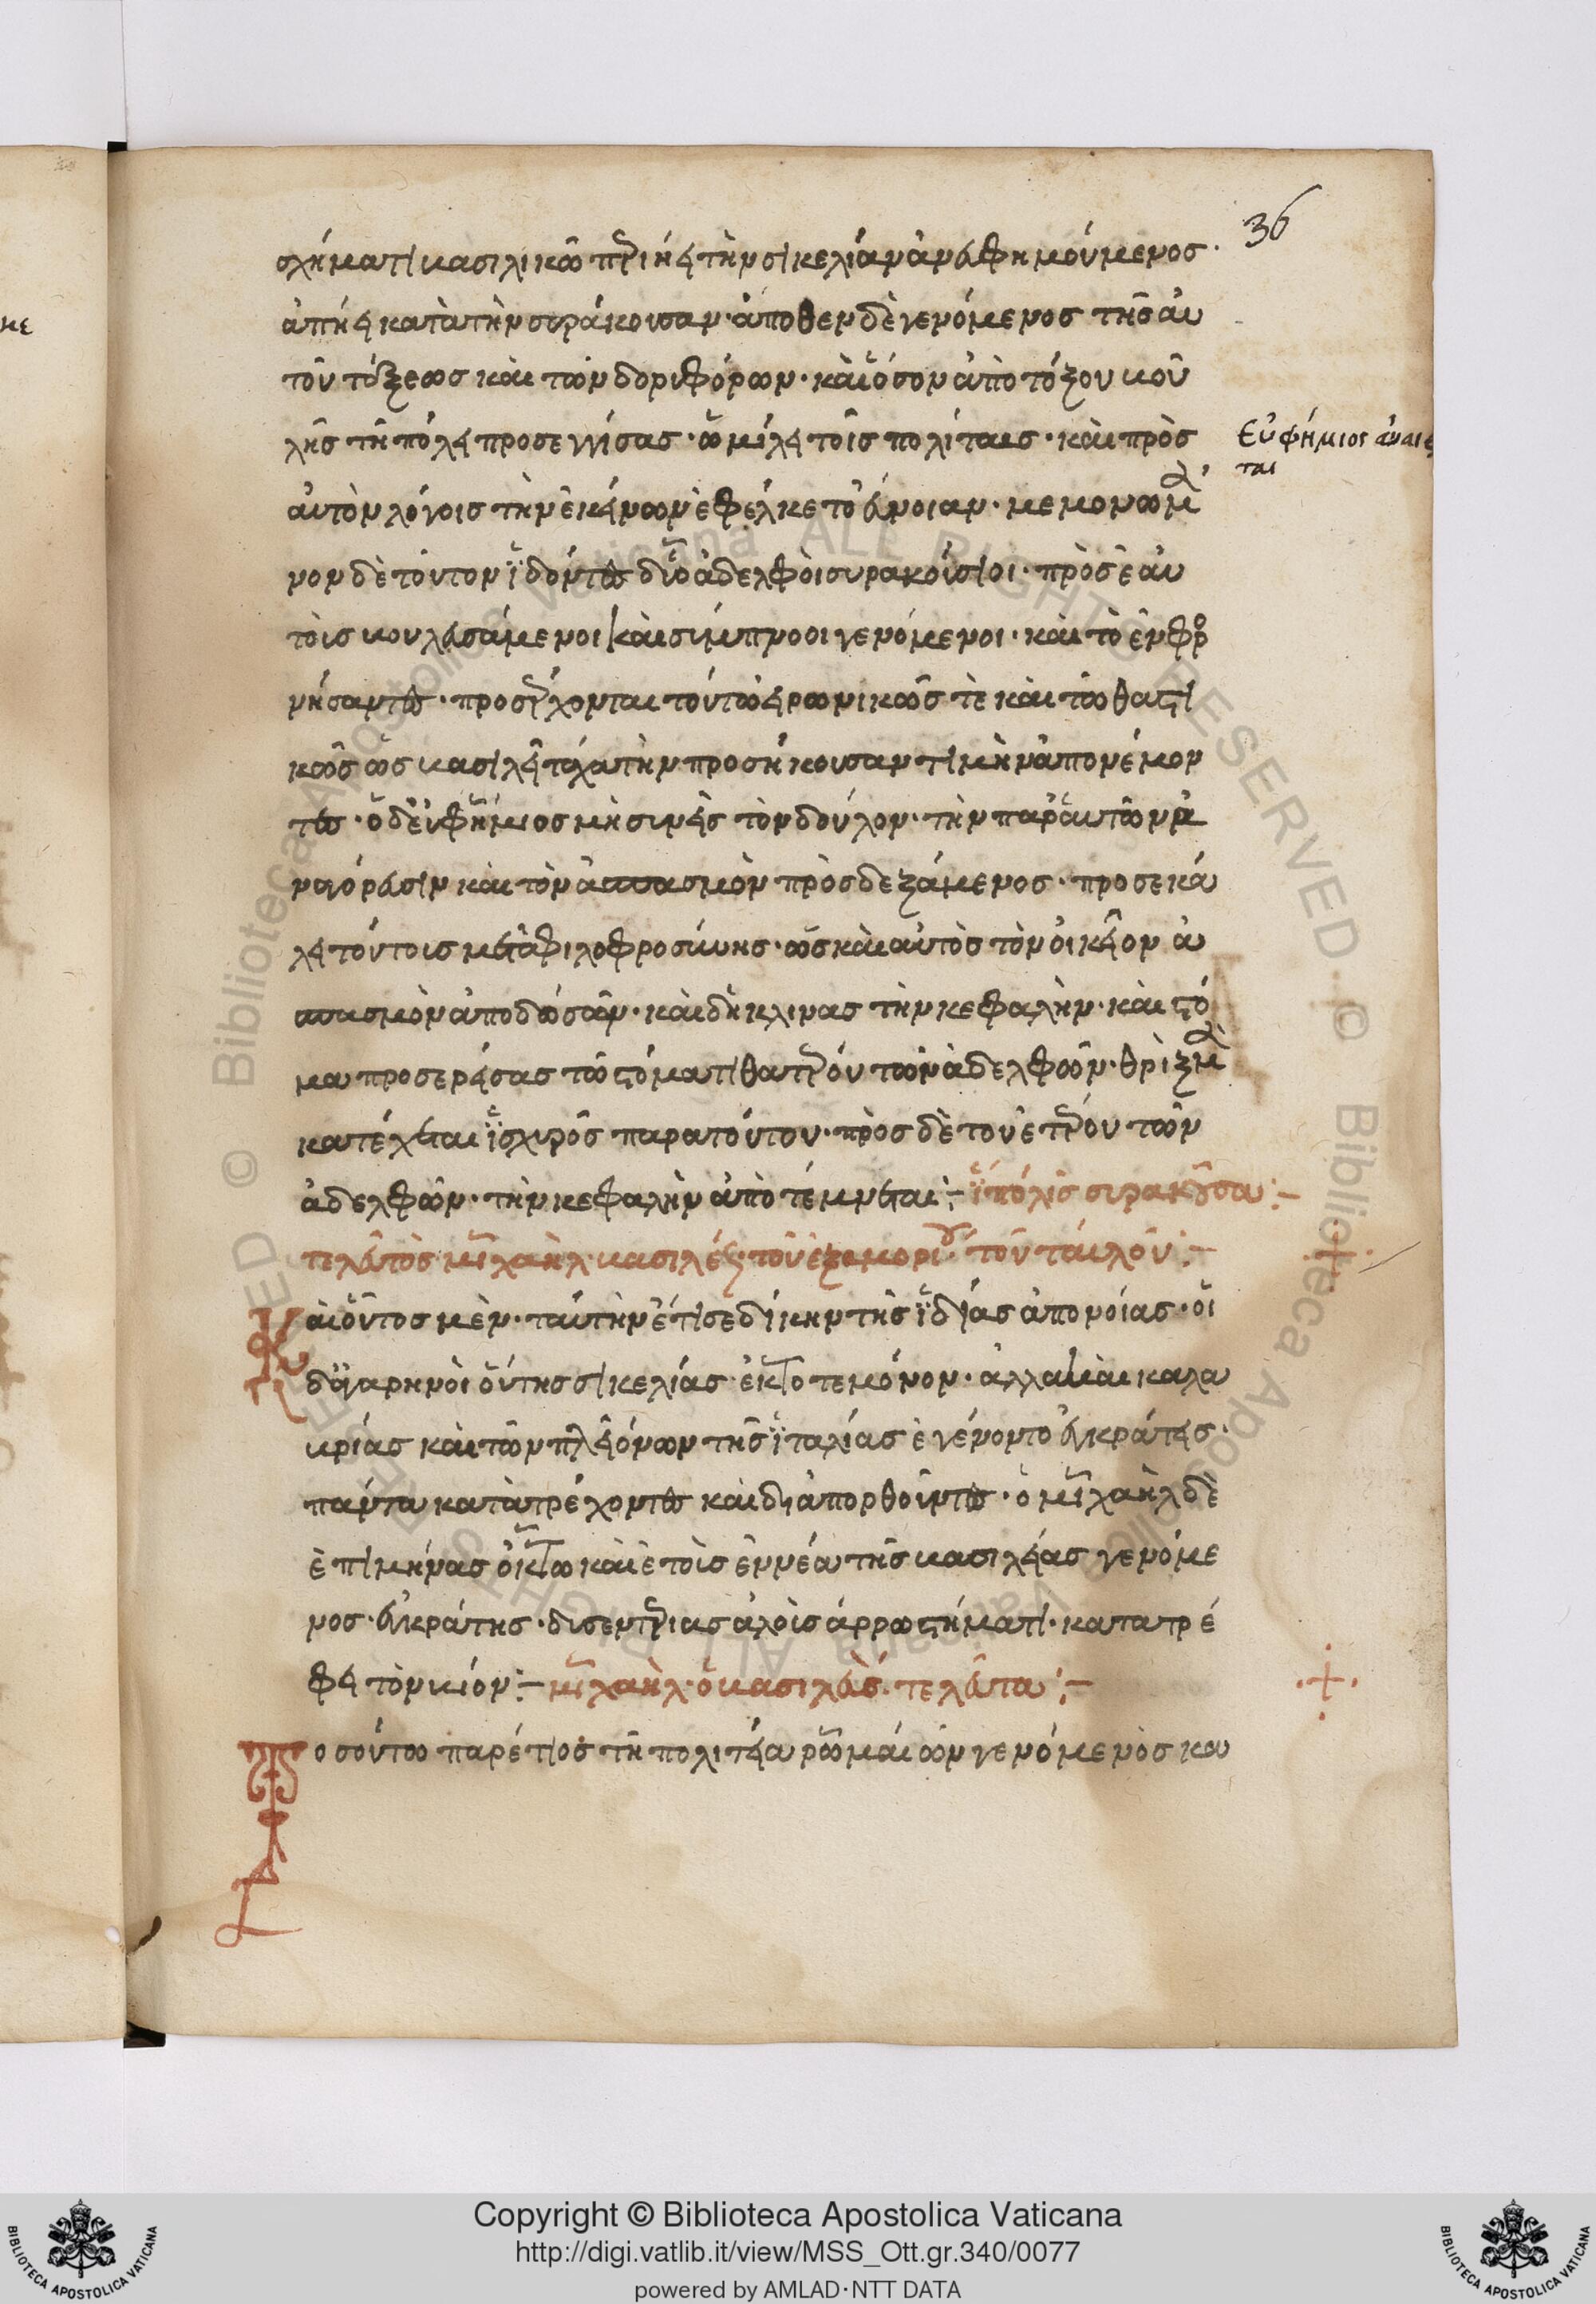 36
σχήματι βασιλικῶ περιήει τὴν σικελίαν ἀνευφημούμενος·
ἀπήει κατὰ τὴν συράκουσαν· ἄποθεν δὲ γενόμενος τῆς αὐ
τοῦ τόξεως καὶ τῶν δοριφόρων· καὶ ὅσον ἀπὸ τόξου βου
λῆς τῆ πόλει προσεγγίσας· ὡμίλει τοῖς πολίταις· καὶ πρὸς
Εὐφήμιος ἀναιρ
ται
αὐτὸν λόγοις τὴν ἐκείνων ἐφείλκετο εὔνοιαν· μεμονωμέ
νον δὲ τοῦτον ἰδόντες δύο ἀδελφοὶ συρακούσιοι· πρὸς ἑαυ
τοῖς βουλευσάμενοι καὶ σύμπνοοι γενόμενοι· καὶ τὸ ἓν φρο
νήσαντες· προσέρχονται τούτω εἰρωνικῶς τὲ καὶ τῶ θατέ
κῶς ὡς βασιλεῖ τάχα τὴν προσήκουσαν τιμὴν ἀπονέμον
τες· ὁ δὲ εὐφήμιος μὴ συνεὶς τὸν δοῦλον· τὴν παρ' αὐτῶν ἀ
ναγόρευσιν καὶ τὸν ἀσπασμὸν πρὸσδεξάμενος· προσεκά
λει τούτοις μετὰ φιλοφροσύνης· ὡς καὶ αὐτὸς τὸν οἰκεῖον ἀ
σπασμὸν ἀποδώσων· καὶ δὴ κλινας τὴν κεφαλὴν· καὶ στό
μα προσερείσας τῶ στόματι θατέρου τῶν ἀδελφῶν· θριξὶ μὲ
κατέχεται ἰσχυρῶς παρα τούτου· πρὸς δὲ τοῦ ἑτέρου τῶν
ἀδελφῶν· τὴν κεφαλὴν ἀπὸτέμνεται:– ἱ πόλις συρακοῦσα:–
τελευτὸς μιχαὴλ βασιλέως τοῦ ἐξ αμορίου τοῦ ταυλοῦ:–
Καὶ οὗτος μὲν· ταύτην ἔτισε δίκην τῆς ἰδίας ἀπονοίας· οἱ
δ' ἀγαρηνοὶ οὐ τῆς σικελίας ἐκτοτε μόνον· ἀλλα καὶ καλα
βρίας καὶ τῶν πλειόνων τῆς ἰταλίας ἐγένοντο ἐγκράτεις·
πάντα κατὰτρέχοντες καὶ διἁπορθοῦντες· ὁ μιχαὴλ δὲ
ἐπὶ μήνας ὀκτω καὶ ἐτοῖς ἐννέα τῆς βασιλείας γενόμε
νος· ἐγκράτης· δισεντερίας ἁλοὶς ἀρρωστήματι· καταστρέ
φει τὸν βίον:– μιχαὴλ ὁ βασιλεὺς τελευτα:–
Τοσούτω παρέτιος τῆ πολιτεία ρωμαίων γενόμενὸς κα
Copyright © Biblioteca Apostolica Vaticana
http://digi.vatlib.it/view/MSS_Ott.gr.340/0077
powered by AMLAD·NTT DATA